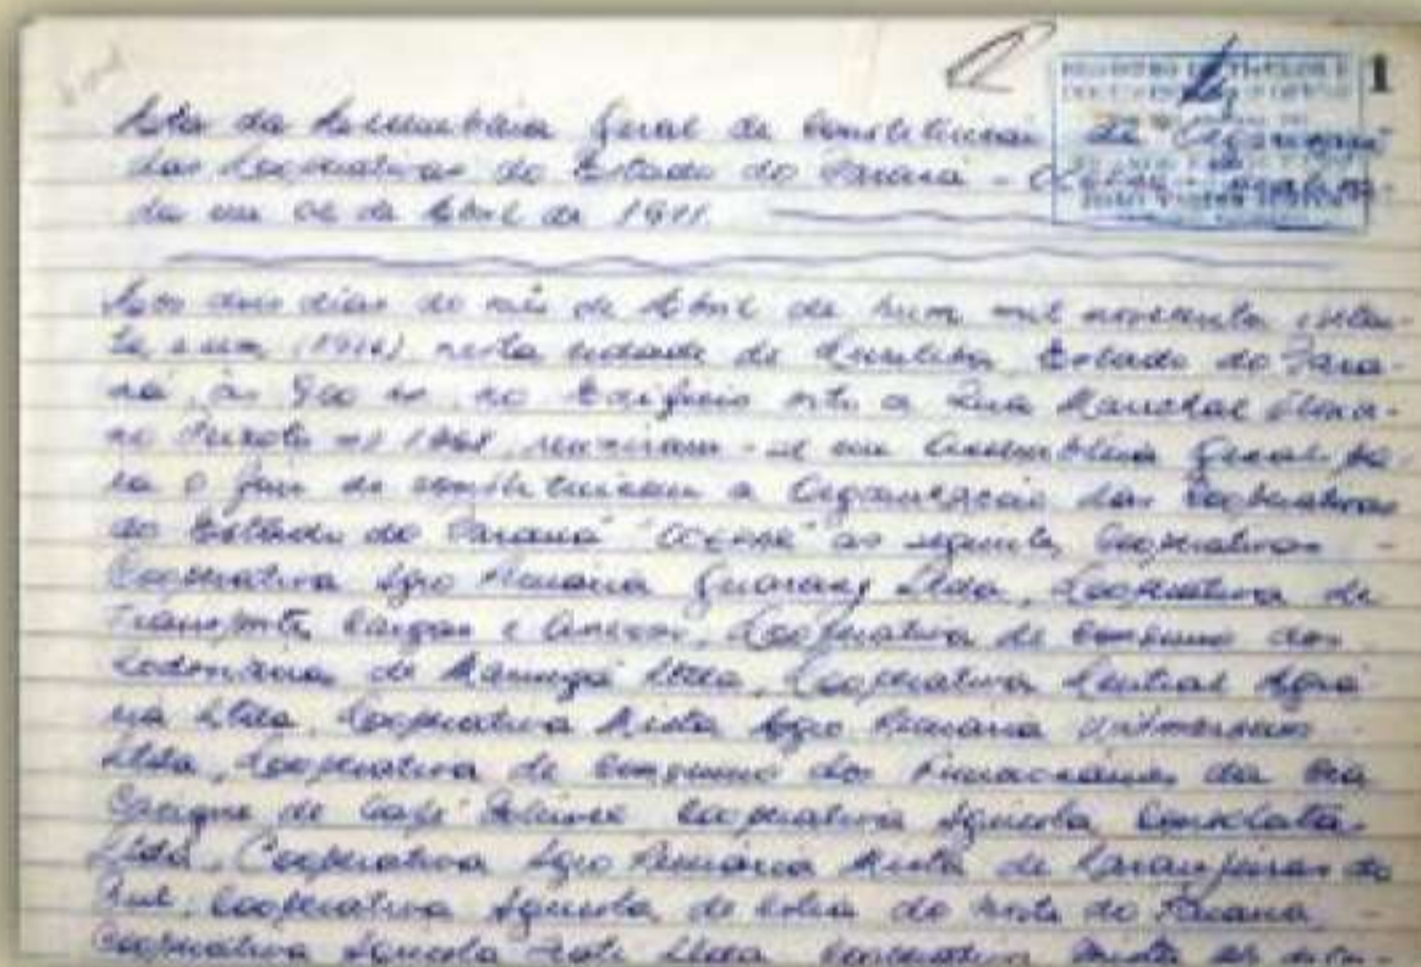 1
Ata da Assembléia Geral de Constituição da "Organização
das Cooperativas do Estado do Paraná - OCEPAR - realiza-
da em 02 de Abril de 1971.
Aos dois dias do mês de Abril de hum mil novecentos e seten-
ta e um (1971) nesta cidade de Curitiba, Estado do Para-
ná, às 9,00 hs, no Edifício sito a Rua Marechal Floria-
no Peixoto nº reuniram-se em Assembléia Geral pa-
ra o fim de constituirem a Organização das Cooperativas
do Estado do Paraná "OCEPAR" as seguintes Cooperativas -
Cooperativa Agro Pecuária Guarany Ltda, Cooperativa de
Transportes Cargas e Anexos, Cooperativa de Consumo dos
Rodoviários de Maringá Ltda, Cooperativa Central Agrá-
ria Ltda, Cooperativa Mista Agro Pecuária Witmarsum
Ltda, Cooperativa de Consumo dos Funcionários da Cia
de Café Cooperativa Agrícola Consolata
Ltda, Cooperativa Agro Pecuária Mista de Laranjeiras do
Sul, Cooperativa Agrícola de Cotia do Norte do Paraná -
Cooperativa Agrícola Ltda Cooperativa Mista